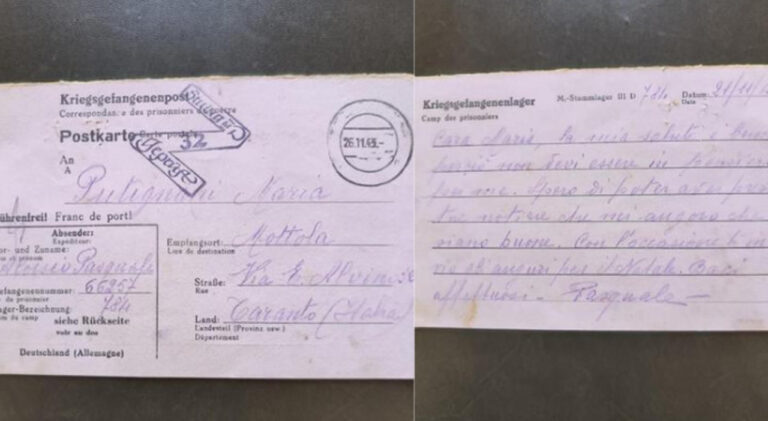 Kriegsgefangenenpost
Correspondance des prisonniers de guerre
Postkarte Carte postale
Geprüft
32
26.11.43.-
An
A
Putignani Maria
ührenfrei! Franc de port!
Absender:
Expéditeur:
or- und Zuname:
Aloisio Pasquale
efangenennummer: 66257
du prisonnier
ager-Bezeichnung: 784
om du camp
siehe Rückseite
voir au dos
Deutschland (Allemagne)
Empfangsort: Mottola
Lieu de destination
Straße: Via E. Alvino
Rue
Land: Taranto (Italia)
Landesteil (Provinz usw.)
Département
Kriegsgefangenenlager M.-Stammlager III D 784 Datum: 21/11/
Camp des prisonniers Date
Cara Maria, la mia salute è
perciò non devi essere in pensiero
per me. Spero di poter aver
tue notizie che mi auguro che
siano buone. Con l'occasione ti
gli auguri per il Natale. Baci
affettuosi - Pasquale -